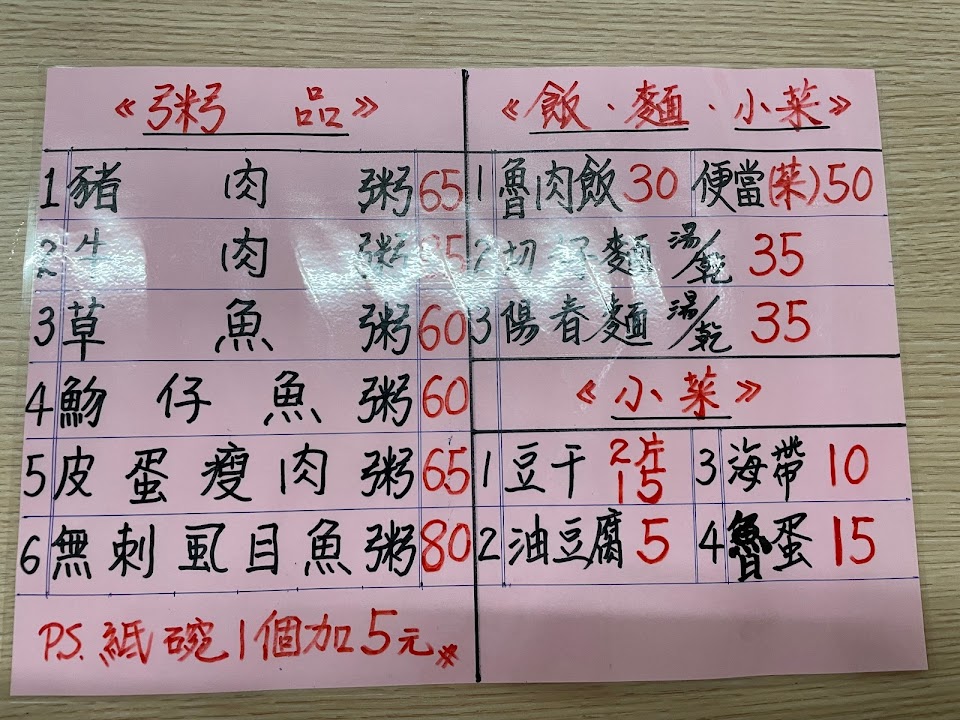 《粥 品》
1 豬肉粥 65
2 牛肉粥
3 草魚粥 60
4 魩仔魚粥 60
5 皮蛋瘦肉粥 65
6 無刺虱目魚粥 80
P.S. 紙碗1個加5元※
《飯·麵·小菜》
1 魯肉飯 30 便當(菜) 50
2 切仔麵 湯/乾 35
3 陽春麵 湯/乾 35
《小菜》
1 豆干 2片15 3 海帶 10
2 油豆腐 5 4 魯蛋 15